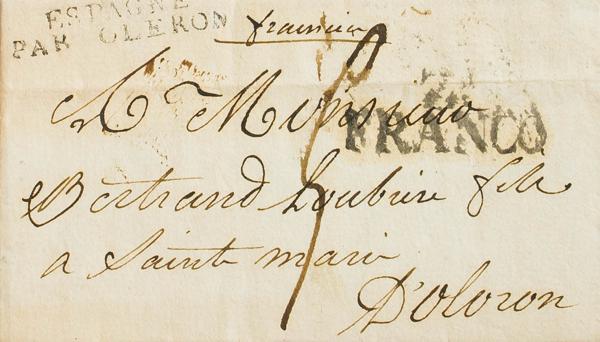 ESPAGNE
PAR OLERON
francia
A Monsieur
FRANCO
Bertrand Loubiere fils
a Sainte marie
D'Oloron